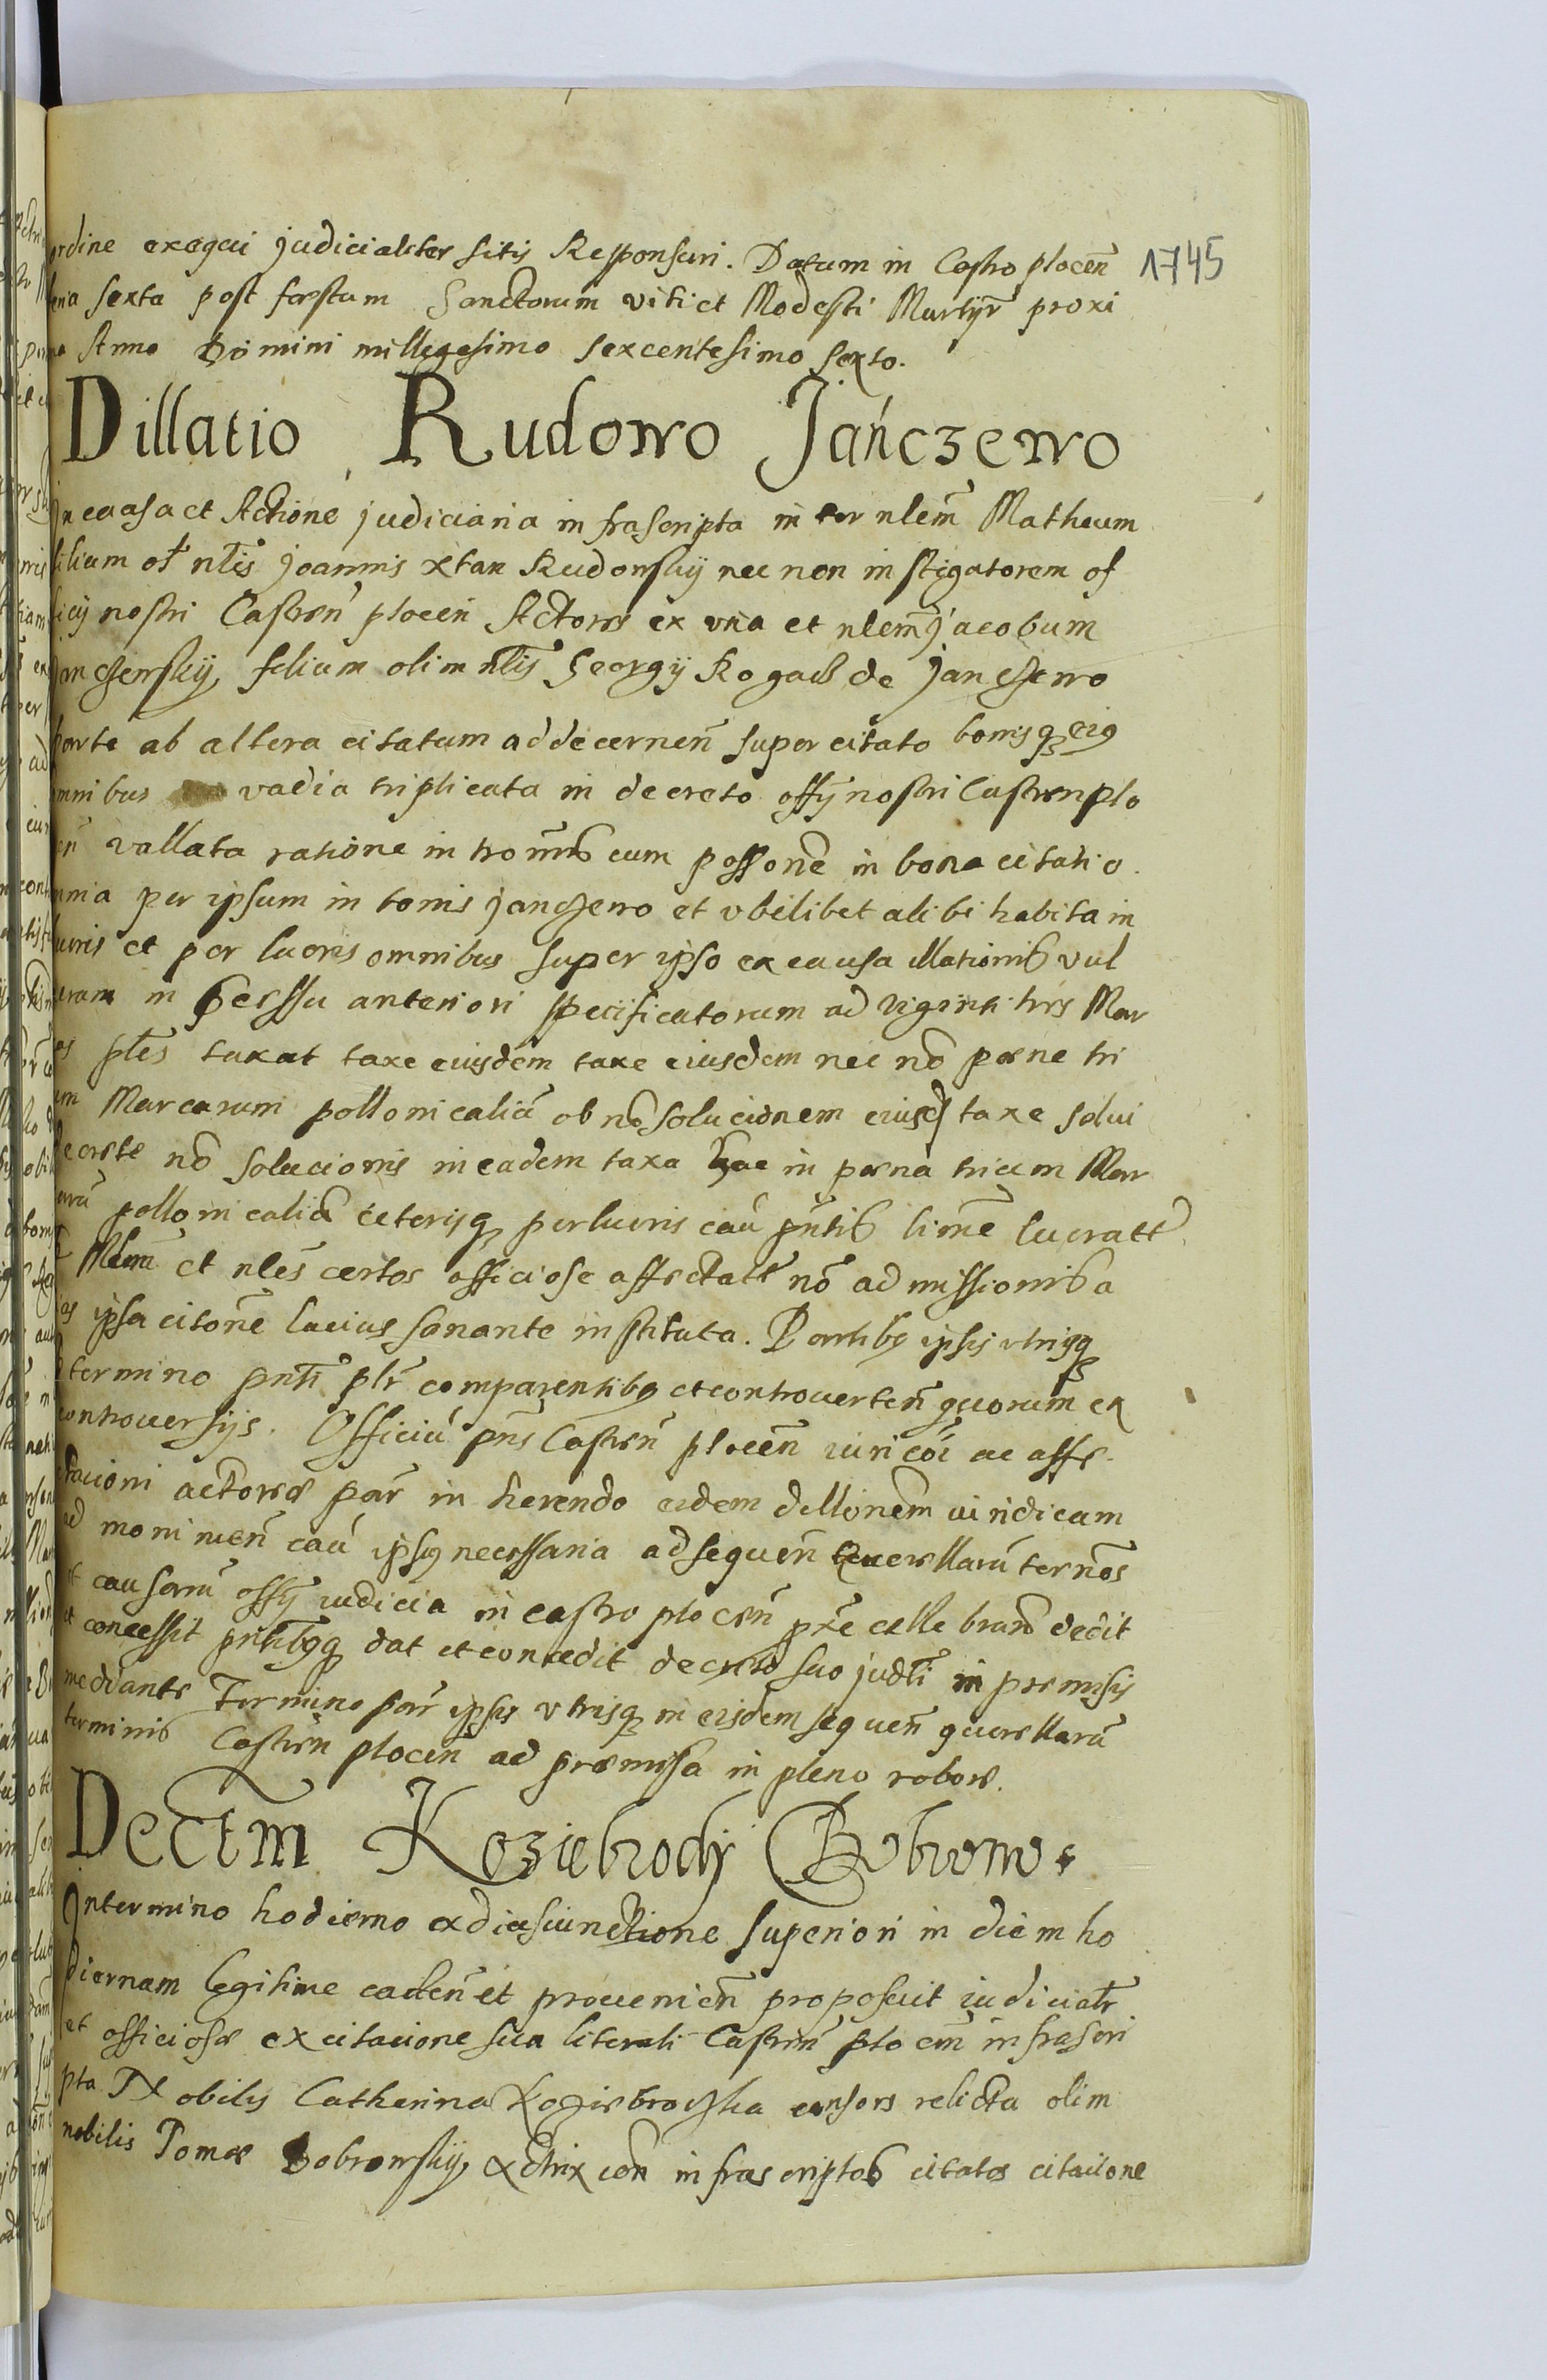 ordine exequi judicialiter sitis Responsuri. Datum in Castro plocen̄ 1745
feria sexta post festum Sanctorum viti et Modesti Martyr̄ proxi
ma Anno Domini millegesimo sexcentesimo sexto.
Dillatio Rudowo Jańczewo
In causa et Actione judiciaria infrascripta inter nlem̄ Matheum
filium ol̄ nlis̄ Joannis Rudowsky nec non instigatorem of
ficij nostri Castren̄ plocen̄ Actores ex una et nlem̄ Jacobum
Janczewskij filium olim nlis̄ Georgij Rogacz de Janczewo
parte ab altera citatum ad decernen̄ super citato bonisq eius
omnibus vadia triplicata in decreto offij nostri Castren plo
cen̄ vallata ratione intromis cum possone in bona citati o
mnia per ipsum in bonis Janczewo et ubilibet alibi habita in
lucris et per lucris omnibus super ipso ex causa illationis vul
nerum in processu anteriori specificatorum ad viginti tres Mar
cas ples taxat taxe eiusdem taxe eiusdem nec nō pene tri
um Marcarum pollonicaliū ob nō solucionem eiusd taxe solui
decrete nō solucionis in eadem taxa hac in pena trium Mar
carū pollonicaliū ceterisq perlucris caū pn̄tis lime lucratt
et nles̄ certos officiose affectatt nō admissionis a
ipsa citone lacius sonante instituta. Partibus ipsis utrisq
termino pn̄ti plr̄ comparentibus et controverten̄ quorum ex
controuersijs. Officiū pn̄s Castren̄ plocen̄ iuricoi ac affe
ctacioni actoree par̄ inherendo eidem dillonem̄ iuridicam
ad monimen̄ caū ipsius necessaria ad sequen̄ querellarū ternos̄
et causarū offij iudicia in castro plocen̄ pxe celle bran̄ decit
et concessit pn̄tibusq dat et concedit decreto suo judli in premisis
mediante Termino par̄ ipsis utrisq in eisdem sequen̄ querellarū
terminis Castren̄ plocen̄ ad premissa in pleno robore.
Decretm Koziebrodij Bobrowo
In termino hodierno ex diasciunctione superiori in diem ho
diernam legitime caden̄ et provenien̄ proposuit iudicialr̄
et officiose ex citacione sua literali Castren̄ plocen̄ infrascri
pta Nobilis Catherina Koziebrodzka consors relicta olim
nobilis Tomae Bobrowskij Actrix con̄ infrascriptos citatos citacione